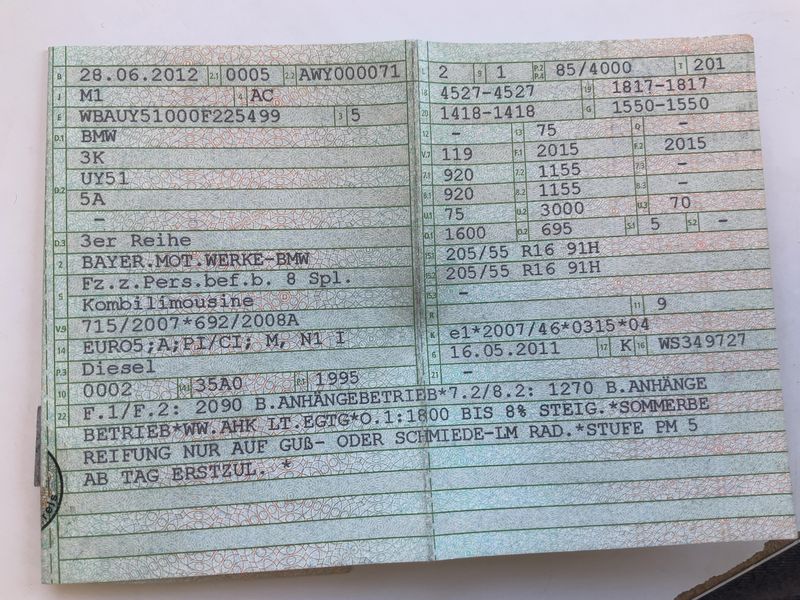 B 28.06.2012 2.1 0005 2.2 AWY000071
J M1 4 AC
E WBAUY51000F225499 3 5
D.1 BMW
3K
D.2 UY51
5A
–
D.3 3er Reihe
2 BAYER.MOT.WERKE-BMW
Fz.z.Pers.bef.b. 8 Spl.
5 Kombilimousine
V.9 715/2007*692/2008A
14 EURO5;A;PI/CI; M, N1 I
P.3 Diesel
10 0002 14.1 35A0 P.1 1995
L 2 9 1 P.2 P.4 85/4000 T 201
18 4527-4527 19 1817-1817
20 1418-1418 G 1550-1550
12 – 13 75 Q –
V.7 119 F.1 2015 F.2 2015
7.1 920 7.2 1155 7.3 –
8.1 920 8.2 1155 8.3 –
U.1 75 U.2 3000 U.3 70
O.1 1600 O.2 695 S.1 5 S.2 –
15.1 205/55 R16 91H
15.2 205/55 R16 91H
15.3 –
R 11 9
K e1*2007/46*0315*04
6 16.05.2011 17 K 16 WS349727
21 –
22 F.1/F.2: 2090 B.ANHÄNGEBETRIEB*7.2/8.2: 1270 B.ANHÄNGE
BETRIEB*WW.AHK LT.EGTG*O.1:1800 BIS 8% STEIG.*SOMMERBE
REIFUNG NUR AUF GUß- ODER SCHMIEDE-LM RAD.*STUFE PM 5
AB TAG ERSTZUL. *
reis